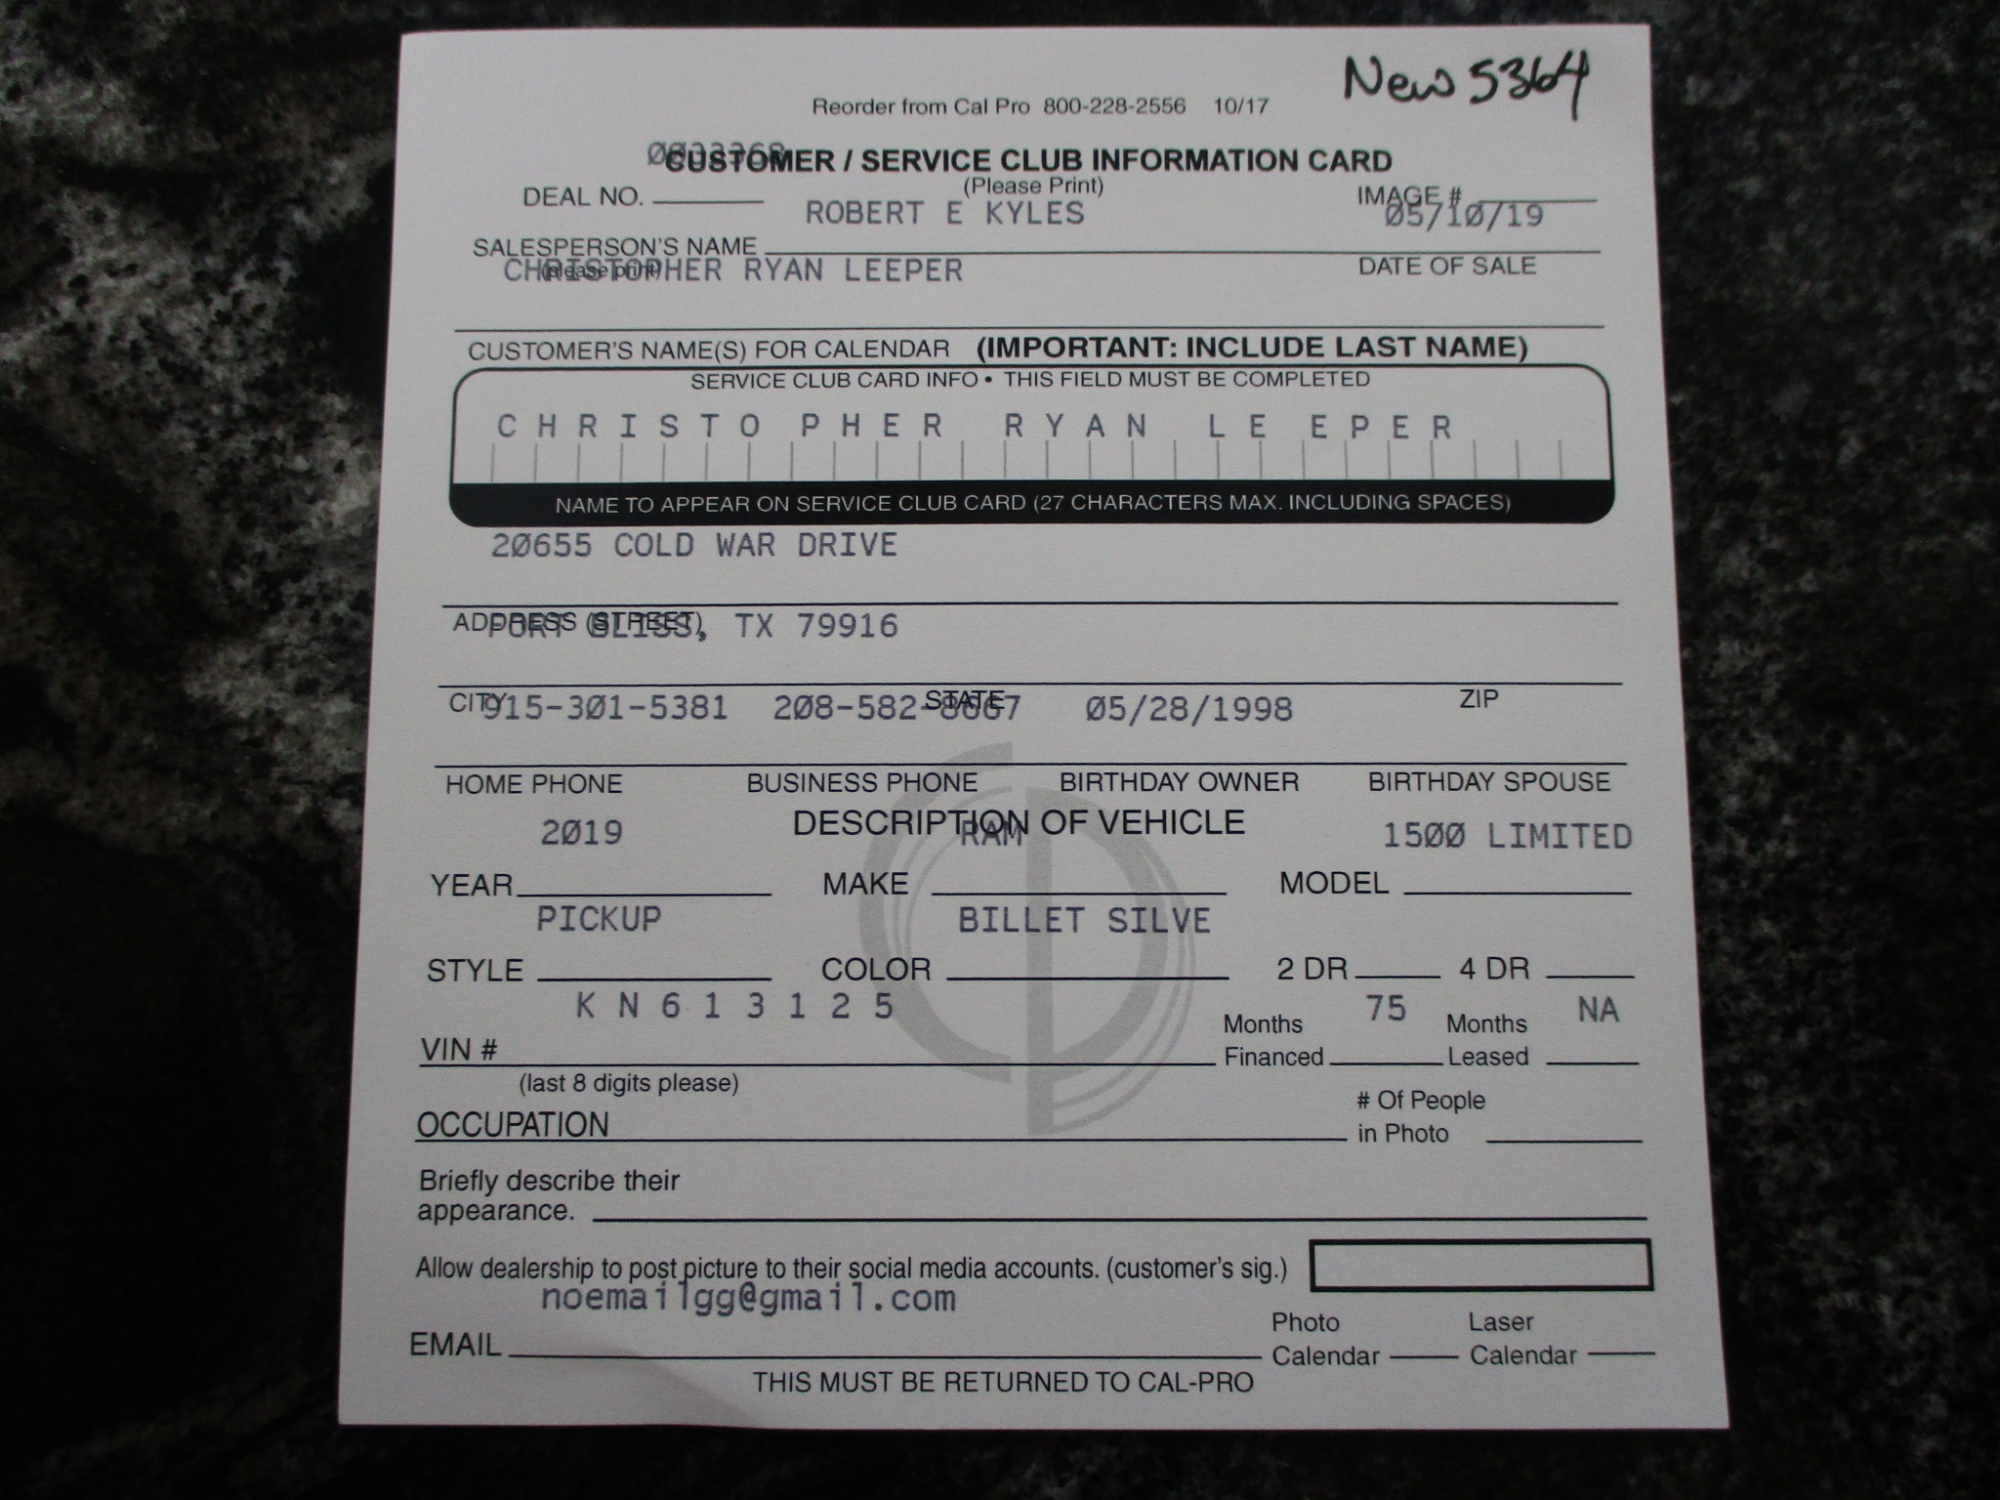 New 5364
Reorder from Cal Pro 800-228-2556 10/17
CUSTOMER / SERVICE CLUB INFORMATION CARD
(Please Print)
DEAL NO. IMAGE #
ROBERT E KYLES 05/10/19
SALESPERSON'S NAME
(please print) DATE OF SALE
CHRISTOPHER RYAN LEEPER
CUSTOMER'S NAME(S) FOR CALENDAR (IMPORTANT: INCLUDE LAST NAME)
SERVICE CLUB CARD INFO • THIS FIELD MUST BE COMPLETED
CHRISTOPHER RYAN LEEPER
NAME TO APPEAR ON SERVICE CLUB CARD (27 CHARACTERS MAX. INCLUDING SPACES)
20655 COLD WAR DRIVE
ADDRESS (STREET)
FORT BLISS, TX 79916
CITY STATE ZIP
915-301-5381 208-582-8667 05/28/1998
HOME PHONE BUSINESS PHONE BIRTHDAY OWNER BIRTHDAY SPOUSE
DESCRIPTION OF VEHICLE
2019 RAM 1500 LIMITED
YEAR MAKE MODEL
PICKUP BILLET SILVE
STYLE COLOR 2 DR 4 DR
K N 6 1 3 1 2 5 75 NA
VIN # Months Financed Months Leased
(last 8 digits please)
OCCUPATION # Of People in Photo
Briefly describe their
appearance.
Allow dealership to post picture to their social media accounts. (customer's sig.)
noemailgg@gmail.com
EMAIL Photo Calendar Laser Calendar
THIS MUST BE RETURNED TO CAL-PRO